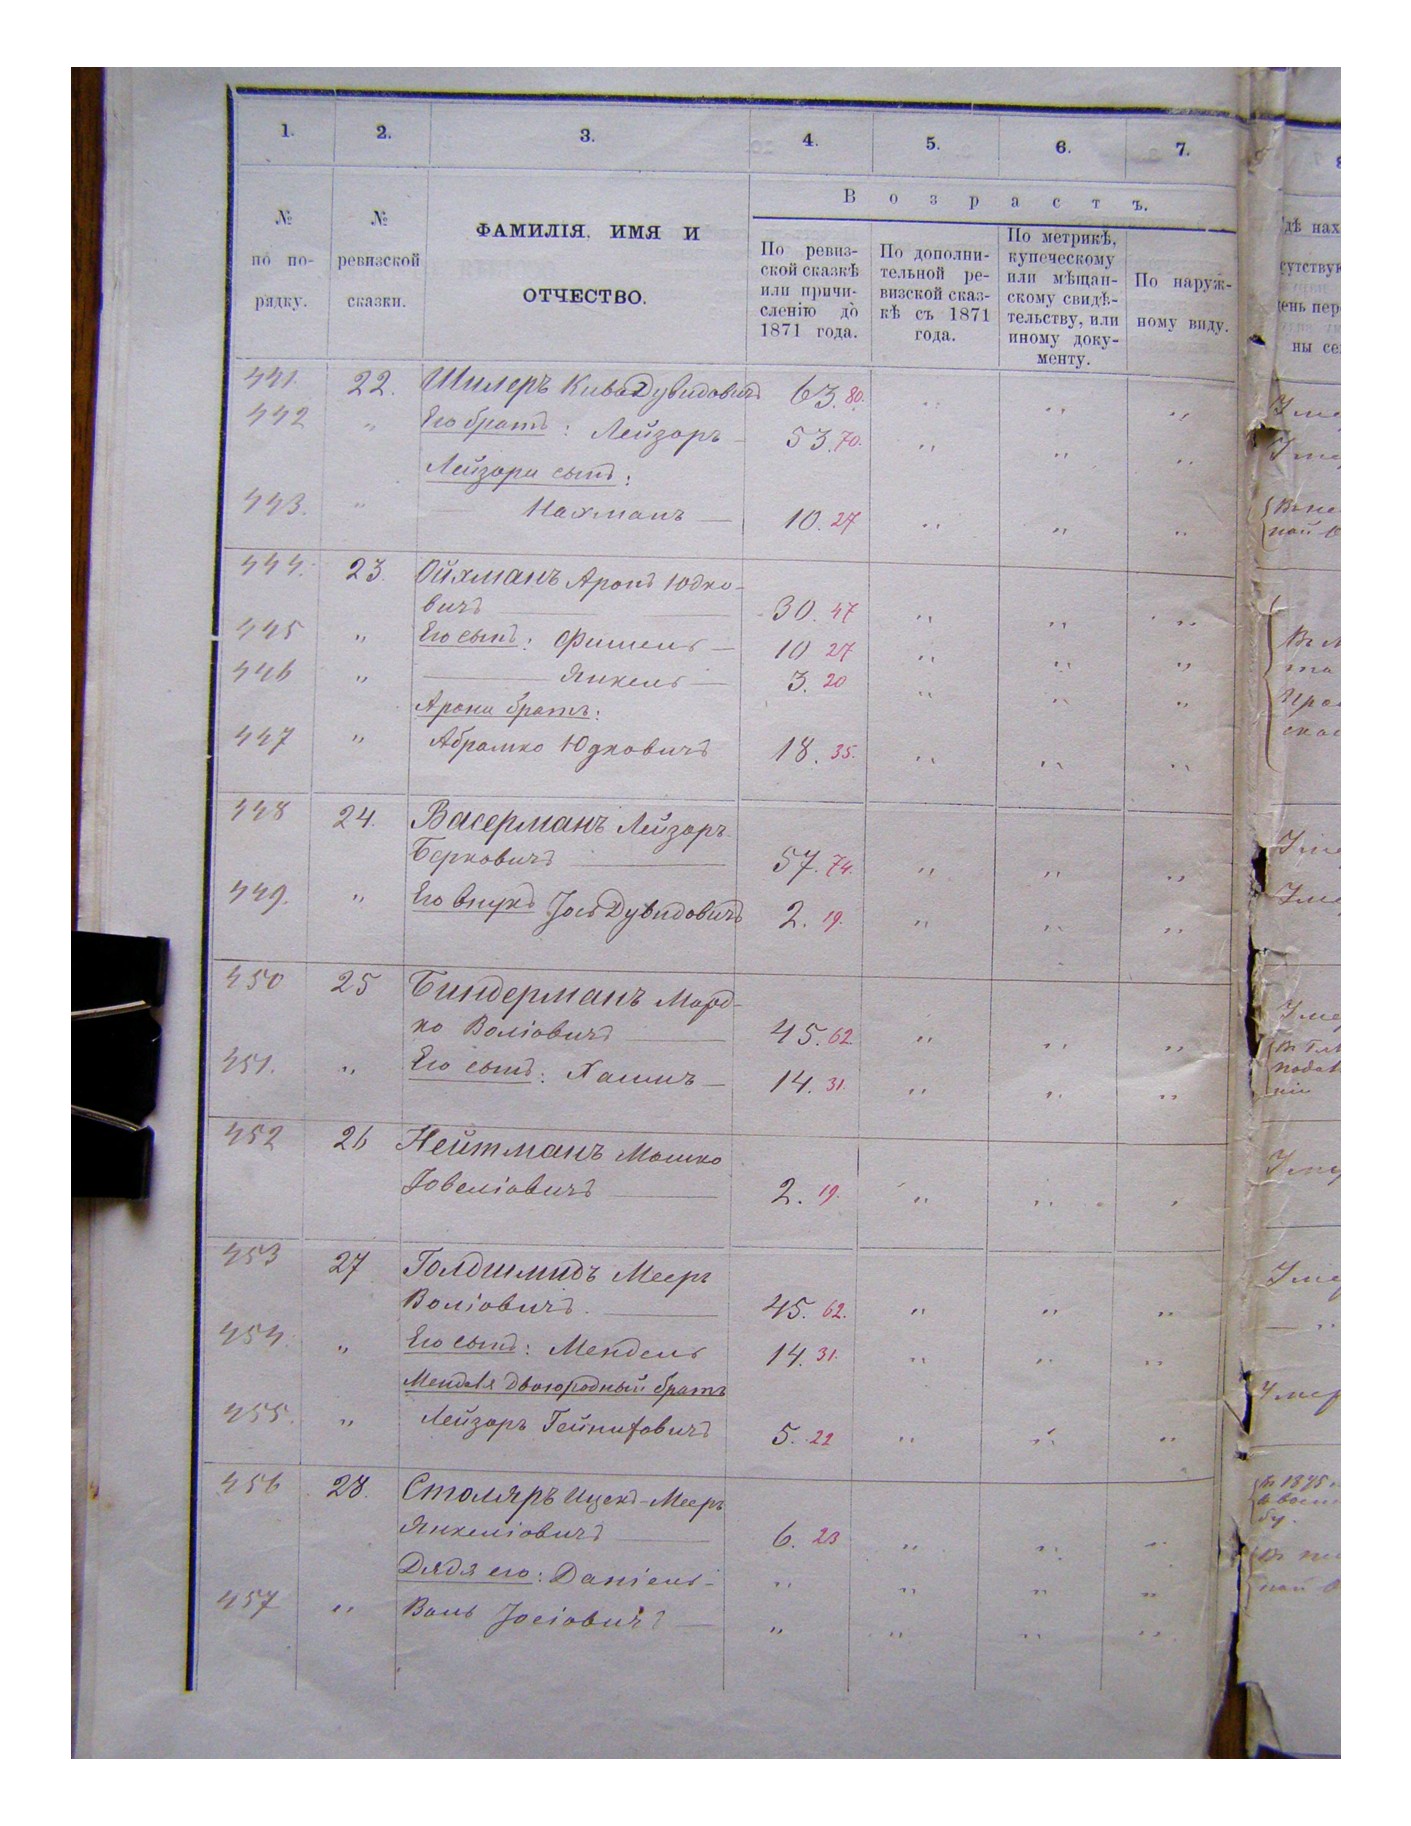 1. 2. 3. 4. 5. 6. 7.
Возрастъ.
№ по порядку.
№ ревизской сказки.
ФАМИЛІЯ, ИМЯ И ОТЧЕСТВО.
По ревиз-
ской сказкѣ
или причи-
сленію до
1871 года.
По дополни-
тельной ре-
визской сказ-
кѣ съ 1871
года.
По метрикѣ,
купеческому
или мѣщан-
скому свидѣ-
тельству, или
иному доку-
менту.
По наруж-
ному виду.
441. 22. Шилеръ Кива Дувидовичъ 63. 80. " " "
442 " Его братъ: Лейзоръ — 53. 70. " " "
Лейзора сынъ:
443. " — Нахманъ — 10. 27 " " "
444. 23. Ойхманъ Аронъ Юдко-
вичъ — 30. 47 " " "
445 " Его сынъ: Фишель — 10 27 " " "
446 " — Янкель — 3. 20 " " "
Арона братъ:
447 " Абрамко Юдковичъ 18. 35. " " "
448 24. Васерманъ Лейзоръ
Берковичъ — 57. 74. " " "
449. " Его внукъ Іось Дувидовичъ 2. 19. " " "
450 25 Биндерманъ Морд-
ко Воліовичъ — 45. 62. " " "
451. " Его сынъ: Хаимъ — 14. 31. " " "
452 26 Нейтманъ Мошко
Іовеліовичъ — 2. 19. " " "
453 27 Голдшмидъ Мееръ
Воліовичъ. — 45. 62. " " "
454. " Его сынъ: Мендель 14. 31. " " "
Менделя двоюродный братъ
455. " Лейзоръ 5. 22 " " "
456 28. Столяръ Ицекъ-Мееръ
Янкеліовичъ — 6. 23 " " "
Дядя его: Даніель- " " " "
457 " Воль Іосіовичъ — " " " "